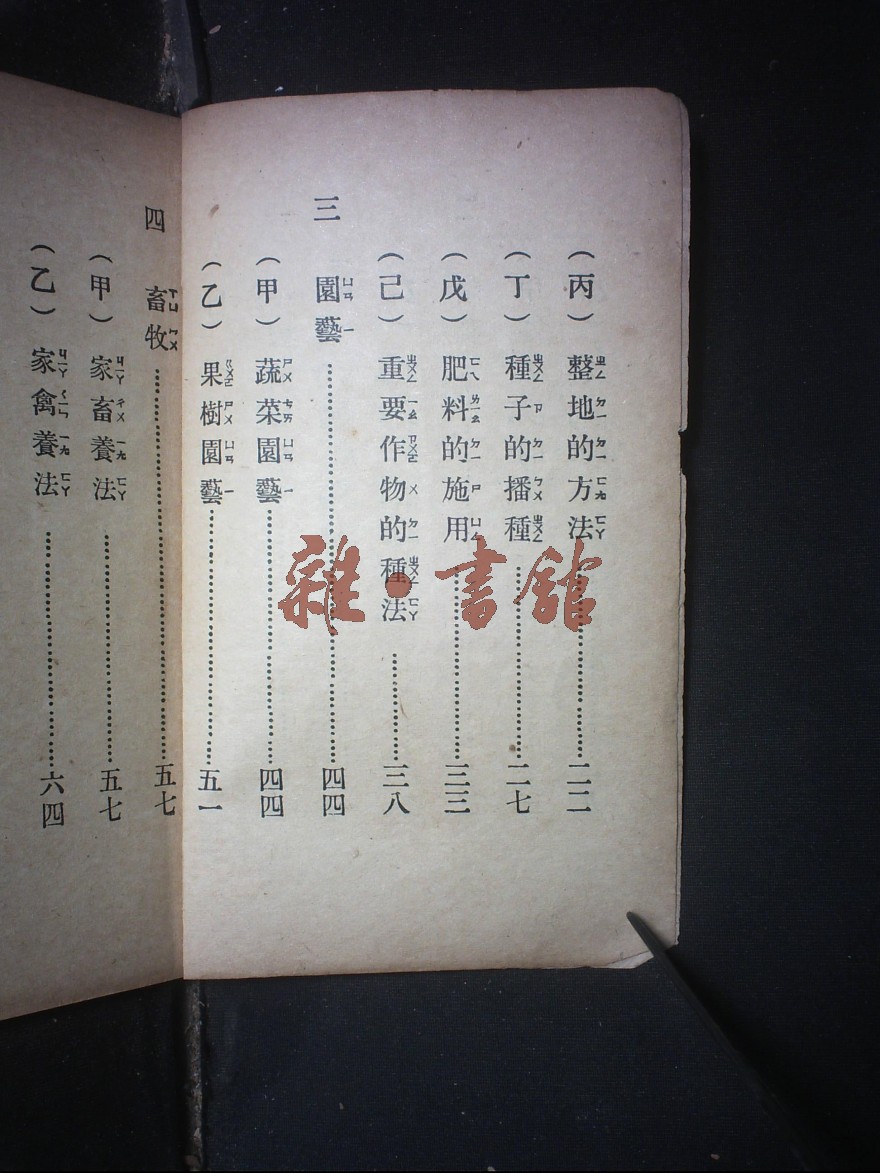 （丙）整地的方法……二二
（丁）種子的播種……二七
（戊）肥料的施用……三三
（己）重要作物的種法……三八
三　園藝……四四
（甲）蔬菜園藝……四四
（乙）果樹園藝……五一
四　畜牧……五七
（甲）家畜養法……五七
（乙）家禽養法……六四
雜·書館